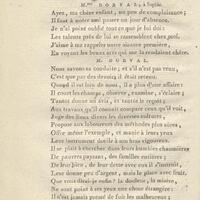 M.me DORVAL, à Sophie.
Ayez, ma chère enfant, un peu de complaisance;
Il faut à notre ami passer un jour d'absence.
Je n'ai point oublié tout ce que je lui doi:
Les talents près de lui se rassemblent chez moi.
J'aime à me rappeler notre sincère
En voyant les beaux arts qui me la rendent chère.
M. DORVAL.
Nous savons se conduire; et s'il n'est pas venu,
C'est que par des devoirs il était retenu.
Quand il est loin de nous, il a plus d'une affaire
Il court les champs, observe, examine, s'éclaire;
Tantôt donne un avis, et tantôt le reçoit.
Aux travaux qu'il connaît compare ceux qu'il voit,
Juge des lieux divers les diverses cultures,
Propose aux laboureurs des méthodes plus sûres,
Offre même l'exemple, et manie à leurs yeux
Leur instrument utile à ses mains
Il se plaît à chercher dans leurs humbles chaumières
De pauvres paysans, des familles entières;
Il les aide, il leur parle avec
Leur donne peu d'argent, mais le place avec fruit.
la douleur, la misère,
Ne sont point à ses yeux une chose étrangère:
Il n'est jamais pressé de fuir les malheureux;